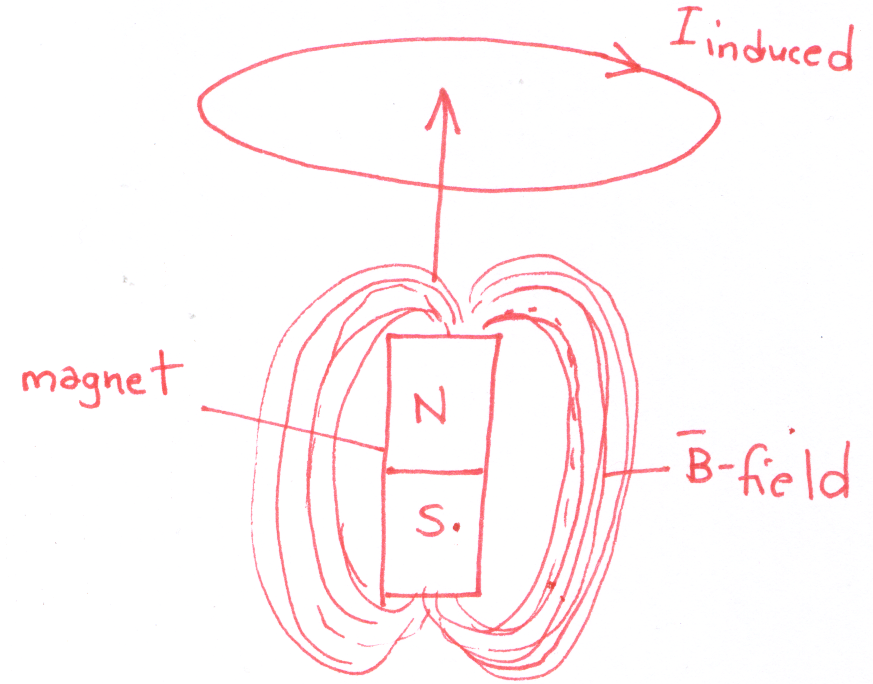 I induced
magnet
N
B-field
S.